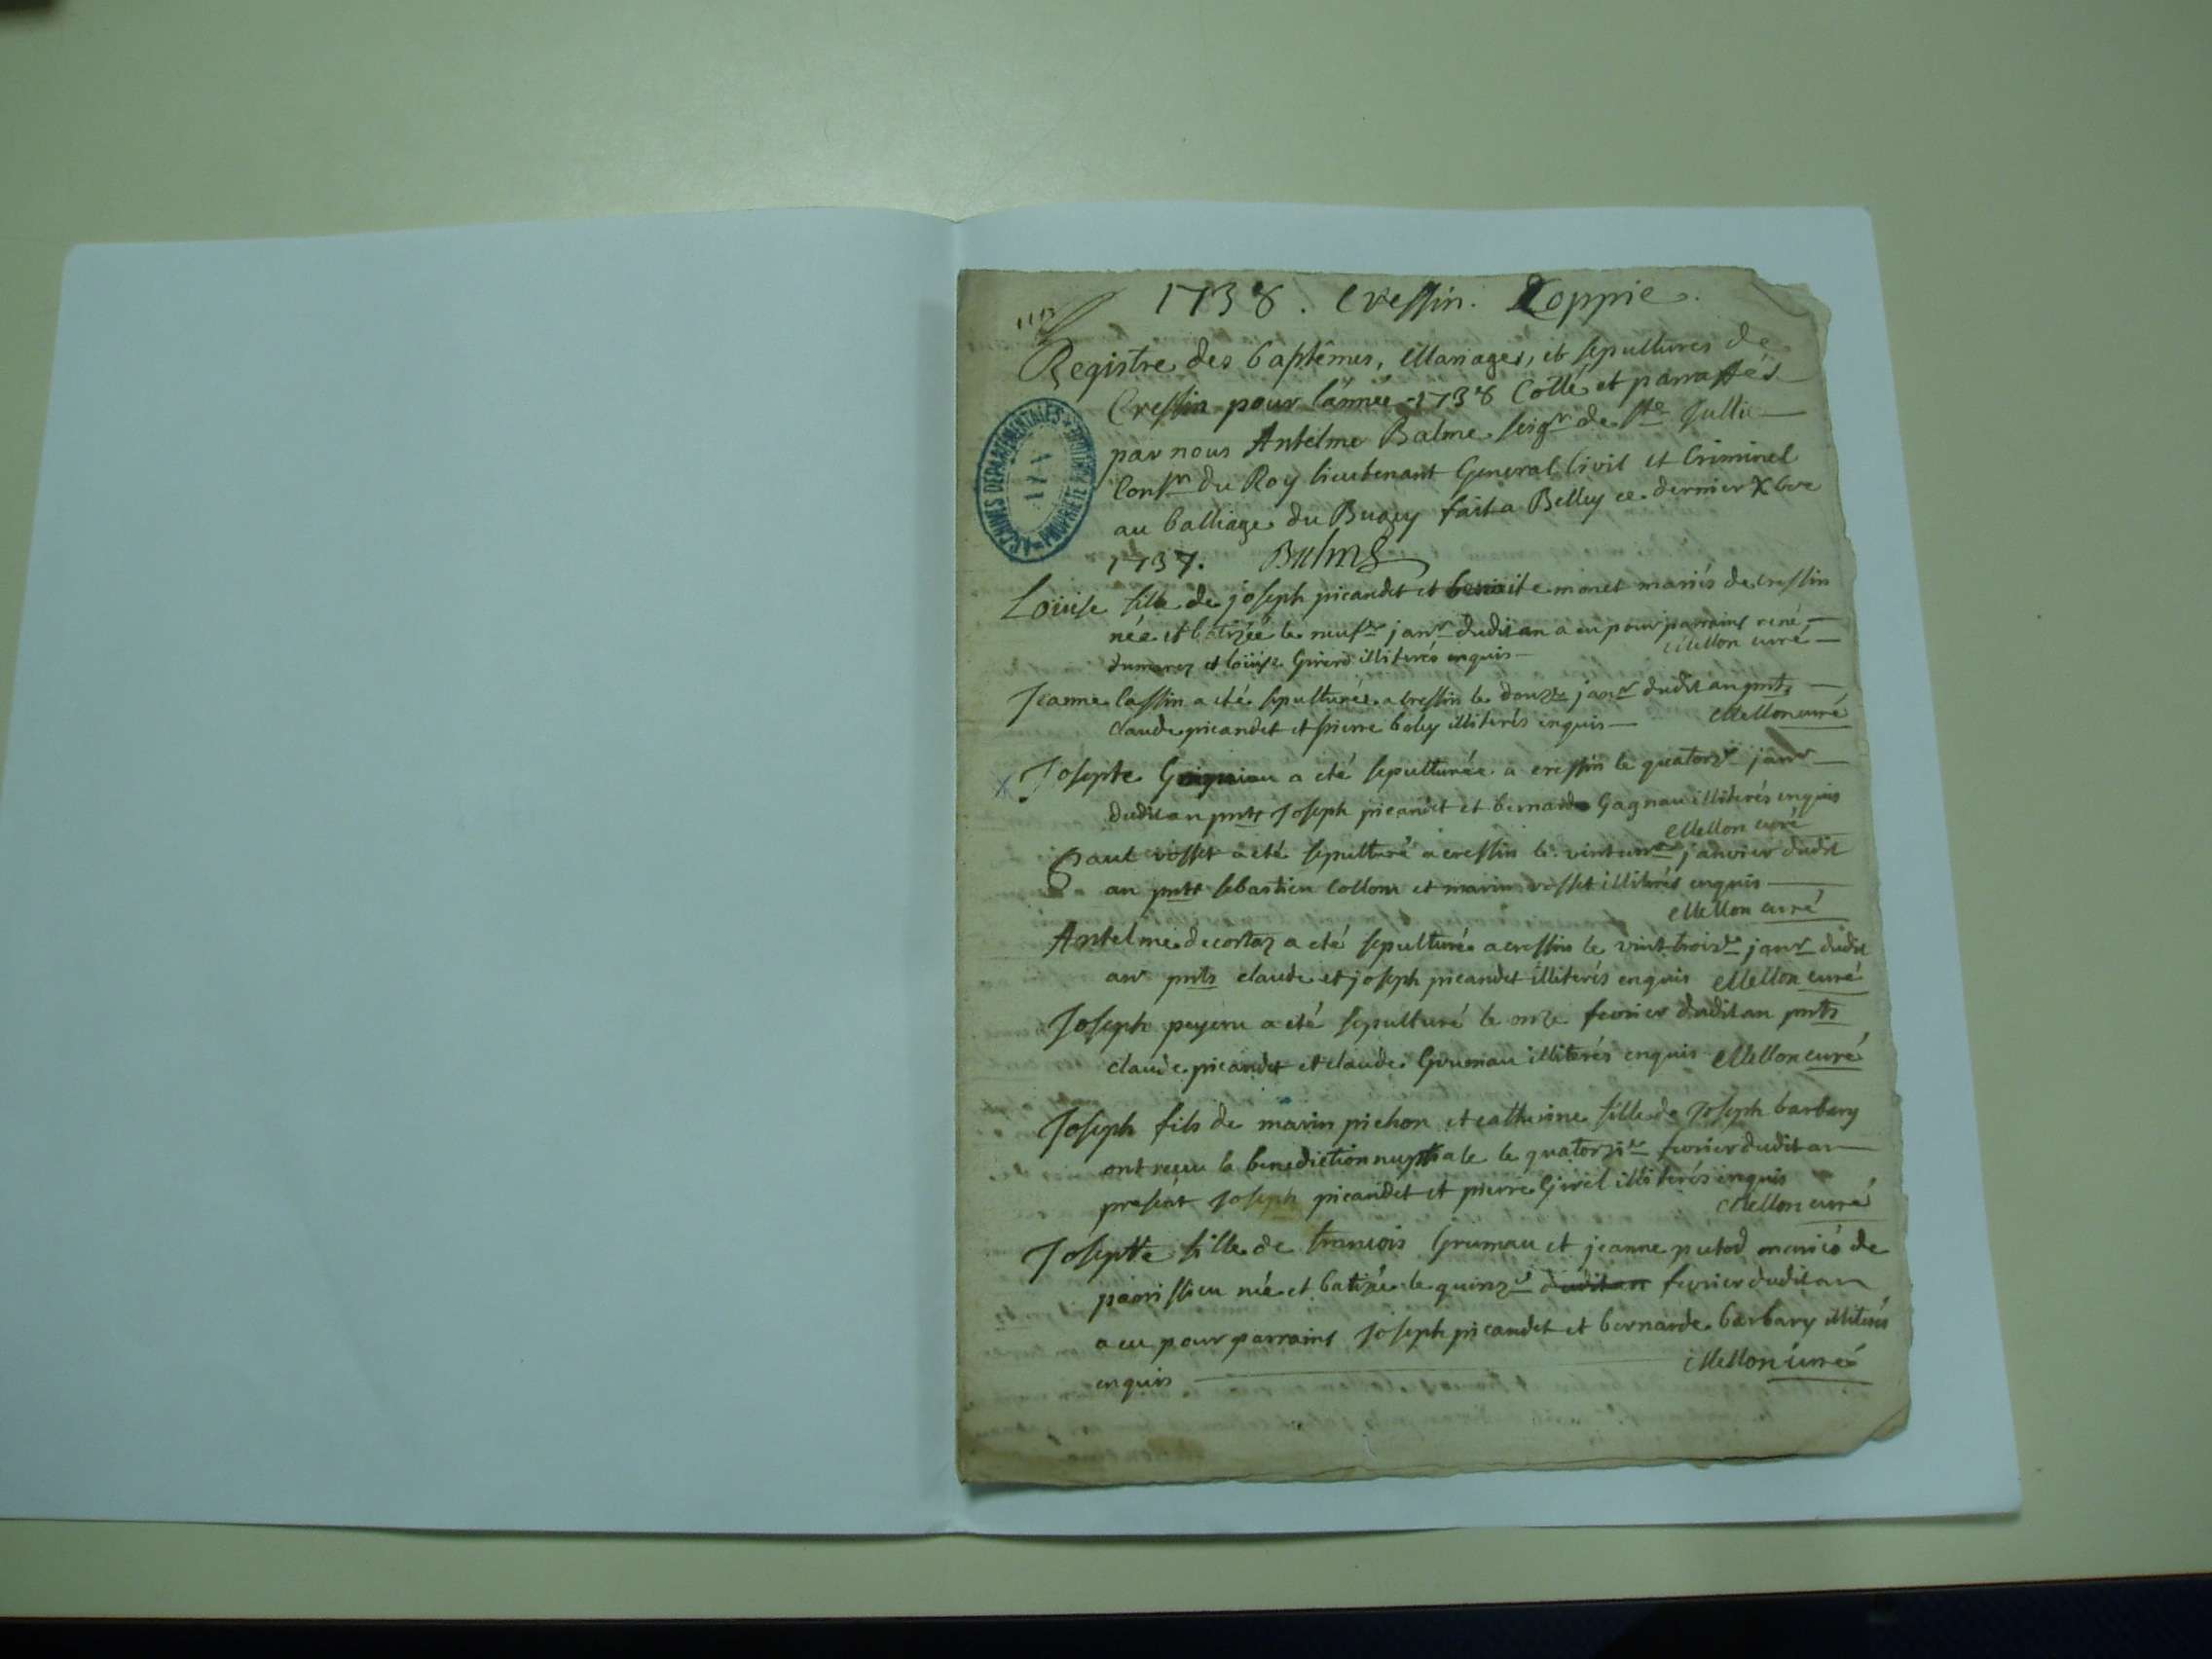 1738. Cressin. Coppie.
Registre des baptêmes, Mariages, et sepultures de
Cressin pour l'année 1738 Cotté et parraffés
par nous Antelme Balme seigr de Ste Jullie
Consr du Roy lieutenant General Civil et Criminel
au balliage du Bugey fait a Belley ce dernier Xbre
1737. Balme
ARCHIVES DÉPARTEMENTALES PROPRIÉTÉ PUBLIQUE AIN
Louise fille de joseph picandet et benoite monet mariés de cressin
née et batizée le neufe janr dudit an a eu pour parrains rené
dumarez et loüise Girerd illiterés enquis Mellon curé
Jeanne Cassin a eté sepulturée a cressin le douze janr dudit an pnts
claude picandet et pierre boley illiterés enquis Mellon curé
Josepte a eté sepulturée a cressin le quatorze janr
dudit an pnts Joseph picandet et bernard Gagnau illiterés enquis
Mellon curé
Paul vosset a eté sepulturé a cressin le vintune janvier dudit
an pnts sebastien Collom et marin vosset illiterés enquis
Mellon curé
Antelme decortaz a eté sepulturée a cressin le vint troise janr dudit
an pnts claude et joseph picandet illiterés enquis Mellon curé
Joseph a eté sepulturé le onze fevrier dudit an pnts
claude picandet et claude Grumau illiterés enquis Mellon curé
Joseph fils de marin pichon et catherine fille de Joseph barbary
ont reçu la benediction nuptiale le quatorzie fevrier dudit an
present Joseph picandet et pierre Girel illiterés enquis
Mellon curé
Josepte fille de francois Grumau et jeanne putod mariés de
parissieu née et batizée le quinze dudit an fevrier dudit an
a eu pour parrains Joseph picandet et bernarde barbary illiterés
enquis Mellon curé